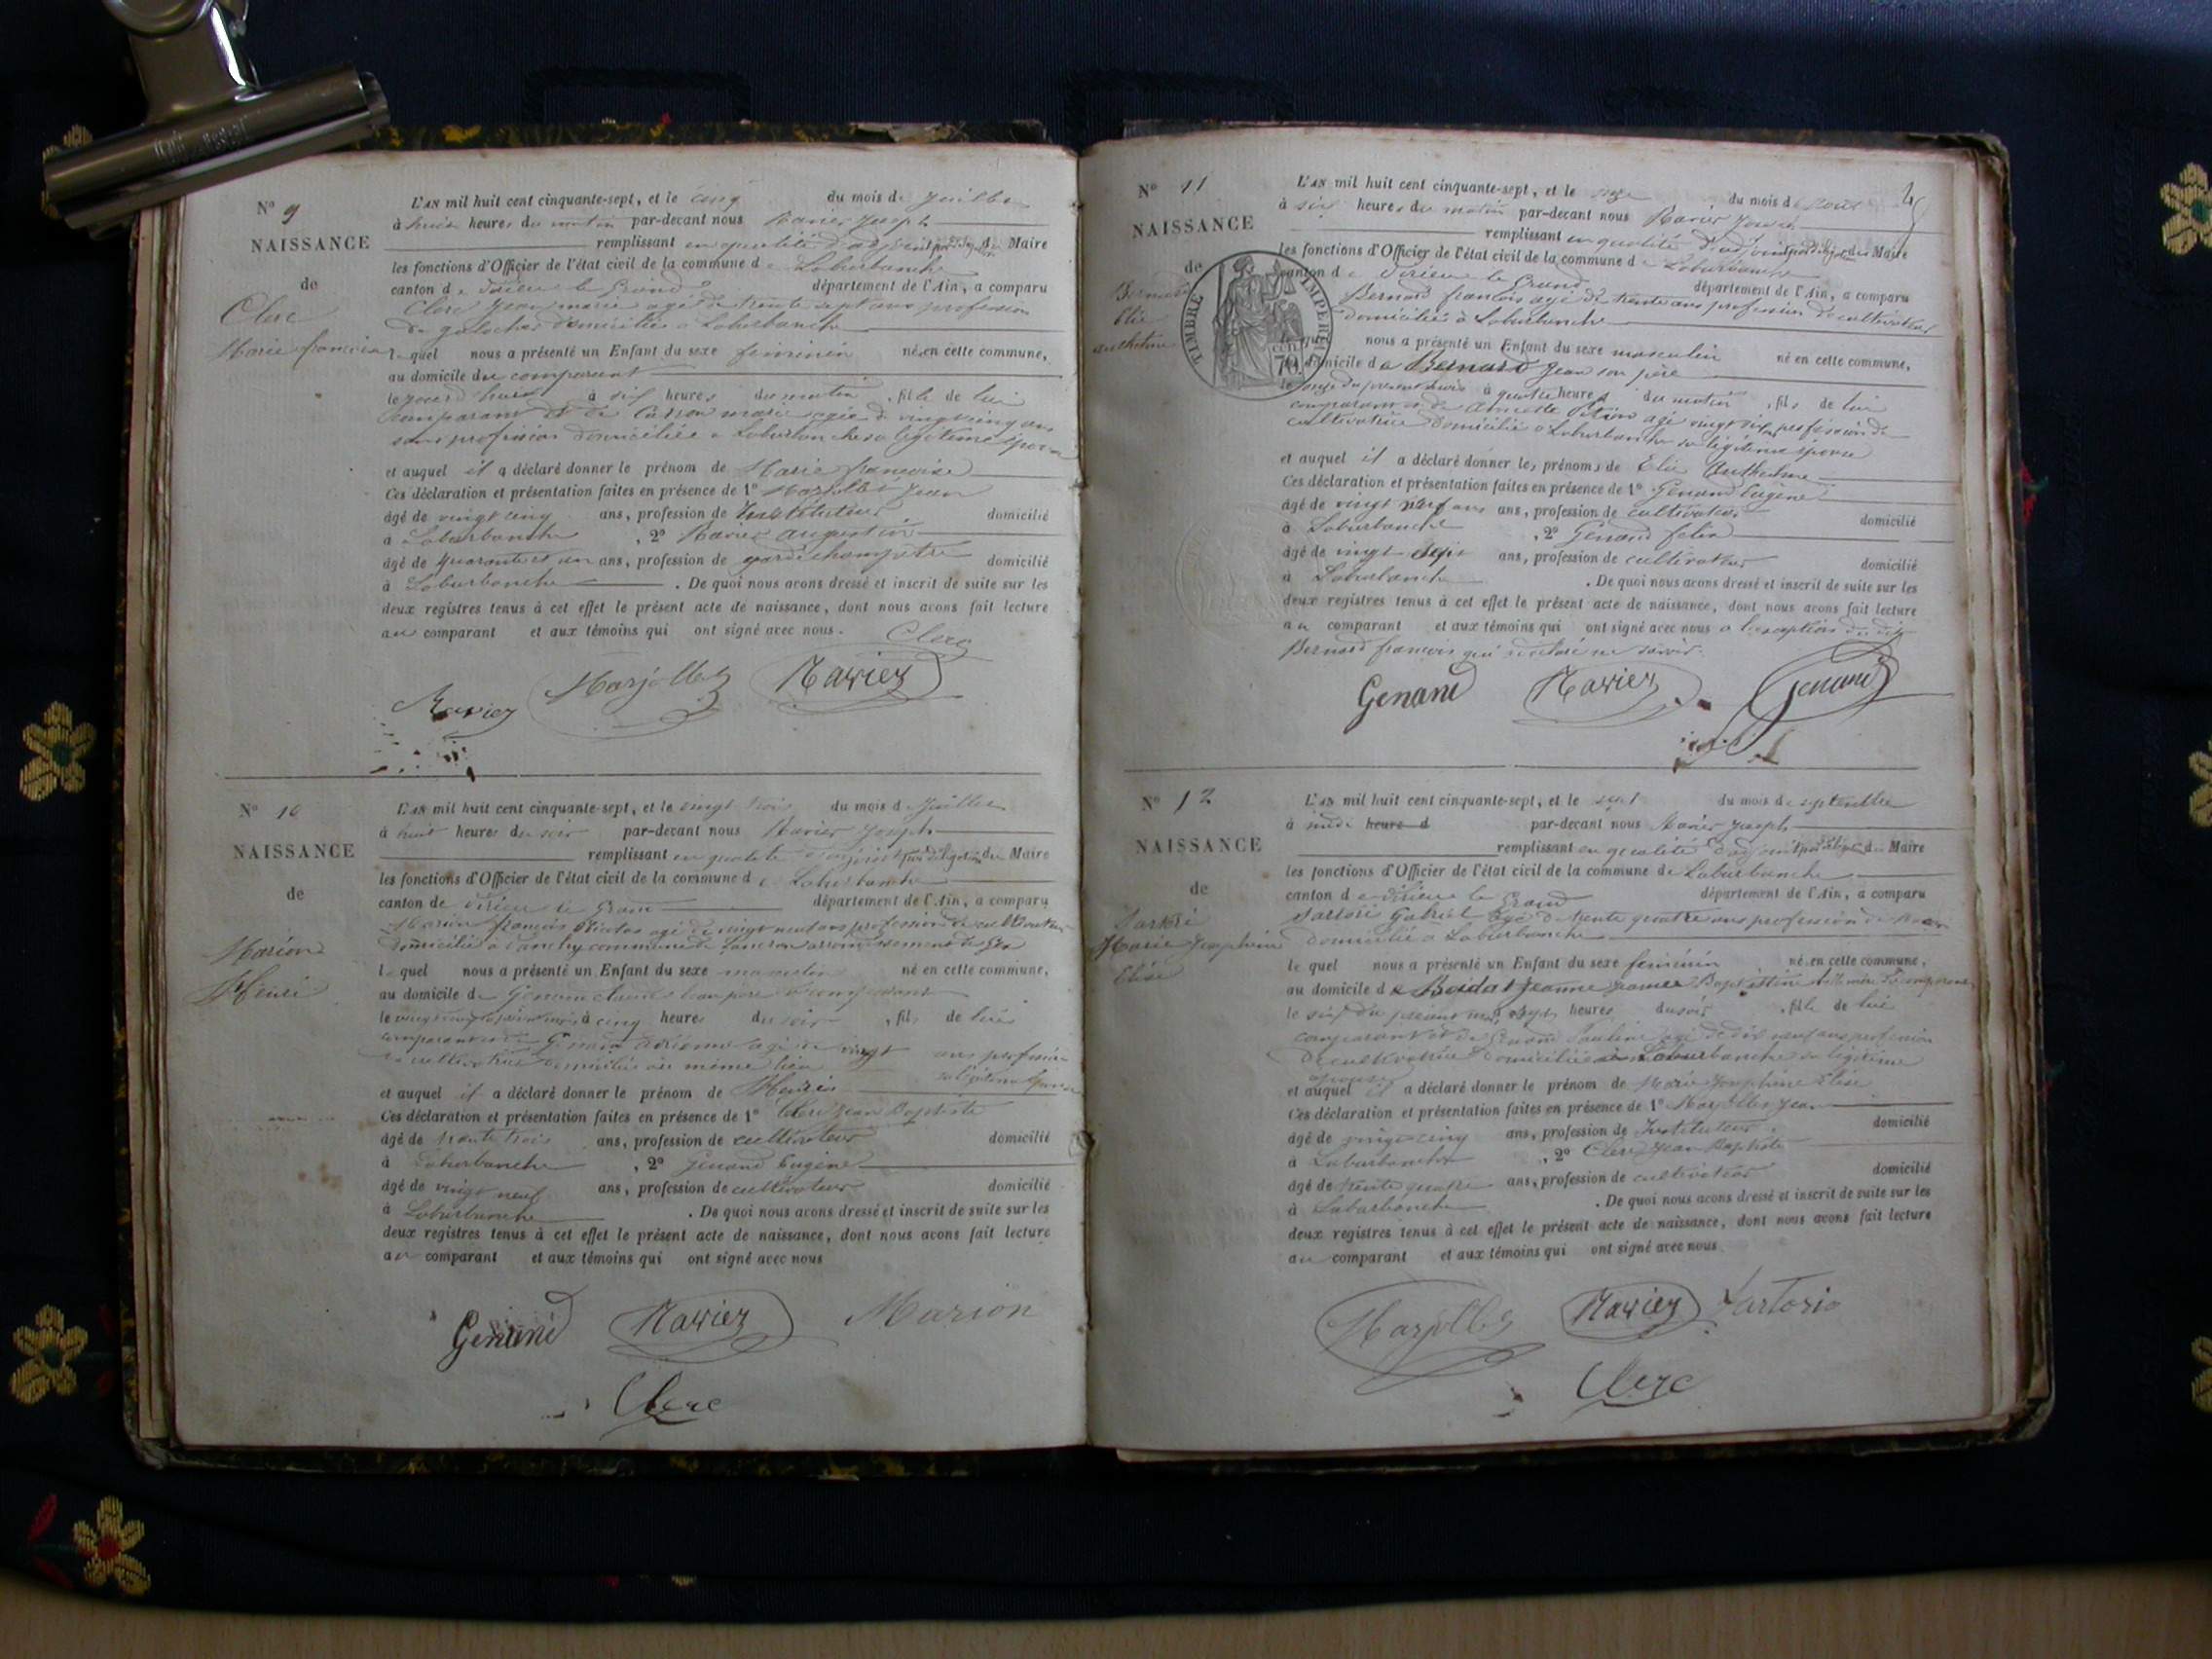 N° 9
NAISSANCE
de
Clerc
Marie françoise
L'AN mil huit cent cinquante-sept, et le cinq du mois de Juillet
à huit heures du matin par-devant nous Ravier Joseph
remplissant en qualité d'adjoint par délégation du Maire
les fonctions d'Officier de l'état civil de la commune de Laburbanche
canton de Virieu le Grand département de l'Ain, a comparu
Clerc Jean marie agé de trente sept ans profession
de galocher domicilié à Laburbanche
le quel nous a présenté un Enfant du sexe feminin né en cette commune,
au domicile du comparant
le à six heures du matin, fille de lui
comparant et de marie agée de vingt cinq ans
sans profession domiciliée a Laburbanche sa légitime épouse
et auquel il a déclaré donner le prénom de Marie françoise
Ces déclaration et présentation faites en présence de 1° Marjollet Jean
âgé de vingt cinq ans, profession de Instituteur domicilié
à Laburbanche, 2° Ravier augustin
âgé de quarante et un ans, profession de garde champetre domicilié
à Laburbanche. De quoi nous avons dressé et inscrit de suite sur les
deux registres tenus à cet effet le présent acte de naissance, dont nous avons fait lecture
au comparant et aux témoins qui ont signé avec nous.
Clerc
Ravier Marjollet Ravier
N° 10
NAISSANCE
de
Marion
Henri
L'AN mil huit cent cinquante-sept, et le vingt trois du mois de Juillet
à huit heures du soir par-devant nous Ravier Joseph
remplissant en qualité d'adjoint par délégation du Maire
les fonctions d'Officier de l'état civil de la commune de Laburbanche
canton de Virieu le Grand département de l'Ain, a comparu
Marion françois Nicolas agé de vingt neuf ans profession de cultivateur
domicilié à commune de arrondissement de Gex
le quel nous a présenté un Enfant du sexe masculin né en cette commune,
au domicile de Genand beau père du comparant
le à cinq heures du soir, fils de lui
comparant et de Genand agé de vingt ans profession
de cultivatrice domiciliée au même lieu sa légitime épouse
et auquel il a déclaré donner le prénom de Henri
Ces déclaration et présentation faites en présence de 1° Clerc Jean Baptiste
âgé de trente trois ans, profession de cultivateur domicilié
à Laburbanche, 2° Genand Eugène
âgé de vingt neuf ans, profession de cultivateur domicilié
à Laburbanche. De quoi nous avons dressé et inscrit de suite sur les
deux registres tenus à cet effet le présent acte de naissance, dont nous avons fait lecture
au comparant et aux témoins qui ont signé avec nous
Genand Ravier Marion
Clerc
N° 11
NAISSANCE
de
Bernard
Elie
anthelme
TIMBRE IMPERIAL
70
L'AN mil huit cent cinquante-sept, et le onze du mois d'aout
à six heures du matin par-devant nous Ravier Joseph
remplissant en qualité d'adjoint par délégation du Maire
les fonctions d'Officier de l'état civil de la commune de Laburbanche
canton de Virieu le Grand département de l'Ain, a comparu
Bernard francois agé de trente ans profession de cultivateur
domicilié à Laburbanche
le quel nous a présenté un Enfant du sexe masculin né en cette commune,
au domicile de Bernard Jean son père
le onze du present mois à quatre heures du matin, fils de lui
comparant et de agé vingt six ans profession de
cultivatrice domicilié a Laburbanche sa légitime épouse
et auquel il a déclaré donner les prénoms de Elie Anthelme
Ces déclaration et présentation faites en présence de 1° Genand Eugene
âgé de vingt neuf ans ans, profession de cultivateur domicilié
à Laburbanche, 2° Genand felix
âgé de vingt sept ans, profession de cultivateur domicilié
à Laburbanche. De quoi nous avons dressé et inscrit de suite sur les
deux registres tenus à cet effet le présent acte de naissance, dont nous avons fait lecture
au comparant et aux témoins qui ont signé avec nous a l'exception du dit
Bernard francois qui a déclaré ne savoir.
Genand Ravier Genand
N° 12
NAISSANCE
de
Sartori
Marie Josephine
Elise
L'AN mil huit cent cinquante-sept, et le sept du mois de septembre
à midi heure d par-devant nous Ravier Joseph
remplissant en qualité d'adjoint par délégation du Maire
les fonctions d'Officier de l'état civil de la commune de Laburbanche
canton de Virieu le Grand département de l'Ain, a comparu
Sartori Gabriel agé de trente quatre ans profession de
domicilié a Laburbanche
le quel nous a présenté un Enfant du sexe feminin né en cette commune,
au domicile de Boidat Jeanne Baptistine belle mère du comparant
le six du présent mois à sept heures du soir, fille de lui
comparant et de Pauline agé de dix neuf ans profession
de cultivatrice domiciliée à Laburbanche sa légitime
épouse
et auquel il a déclaré donner le prénom de Marie Josephine Elise
Ces déclaration et présentation faites en présence de 1° Marjollet Jean
âgé de vingt cinq ans, profession de Instituteur domicilié
à Laburbanche, 2° Clerc Jean Baptiste
âgé de trente quatre ans, profession de cultivateur domicilié
à Laburbanche. De quoi nous avons dressé et inscrit de suite sur les
deux registres tenus à cet effet le présent acte de naissance, dont nous avons fait lecture
au comparant et aux témoins qui ont signé avec nous
Marjollet Ravier Sartorio
Clerc